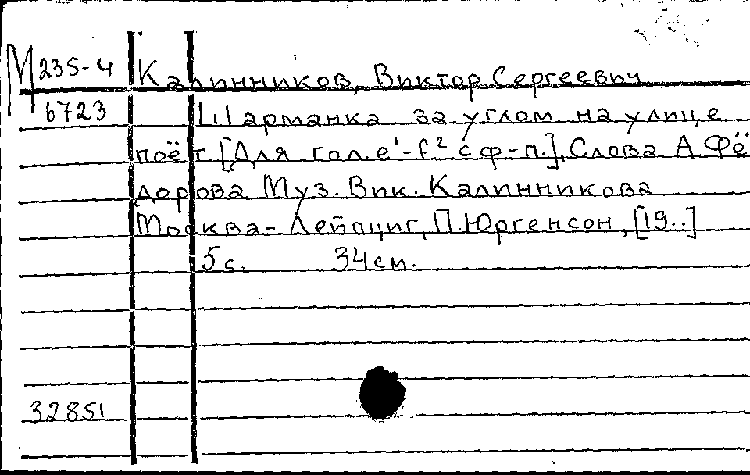 М 235-4 Калинников, Виктор Сергеевич
6723 Шарманка за углом на улице
поёт. [Для гол. e¹-f² с ф-п.]. Слова А. Фё
дорова Муз. Вик. Калинникова
Москва-Лейпциг, П. Юргенсон, [19..]
5 с. 34 см.
32851